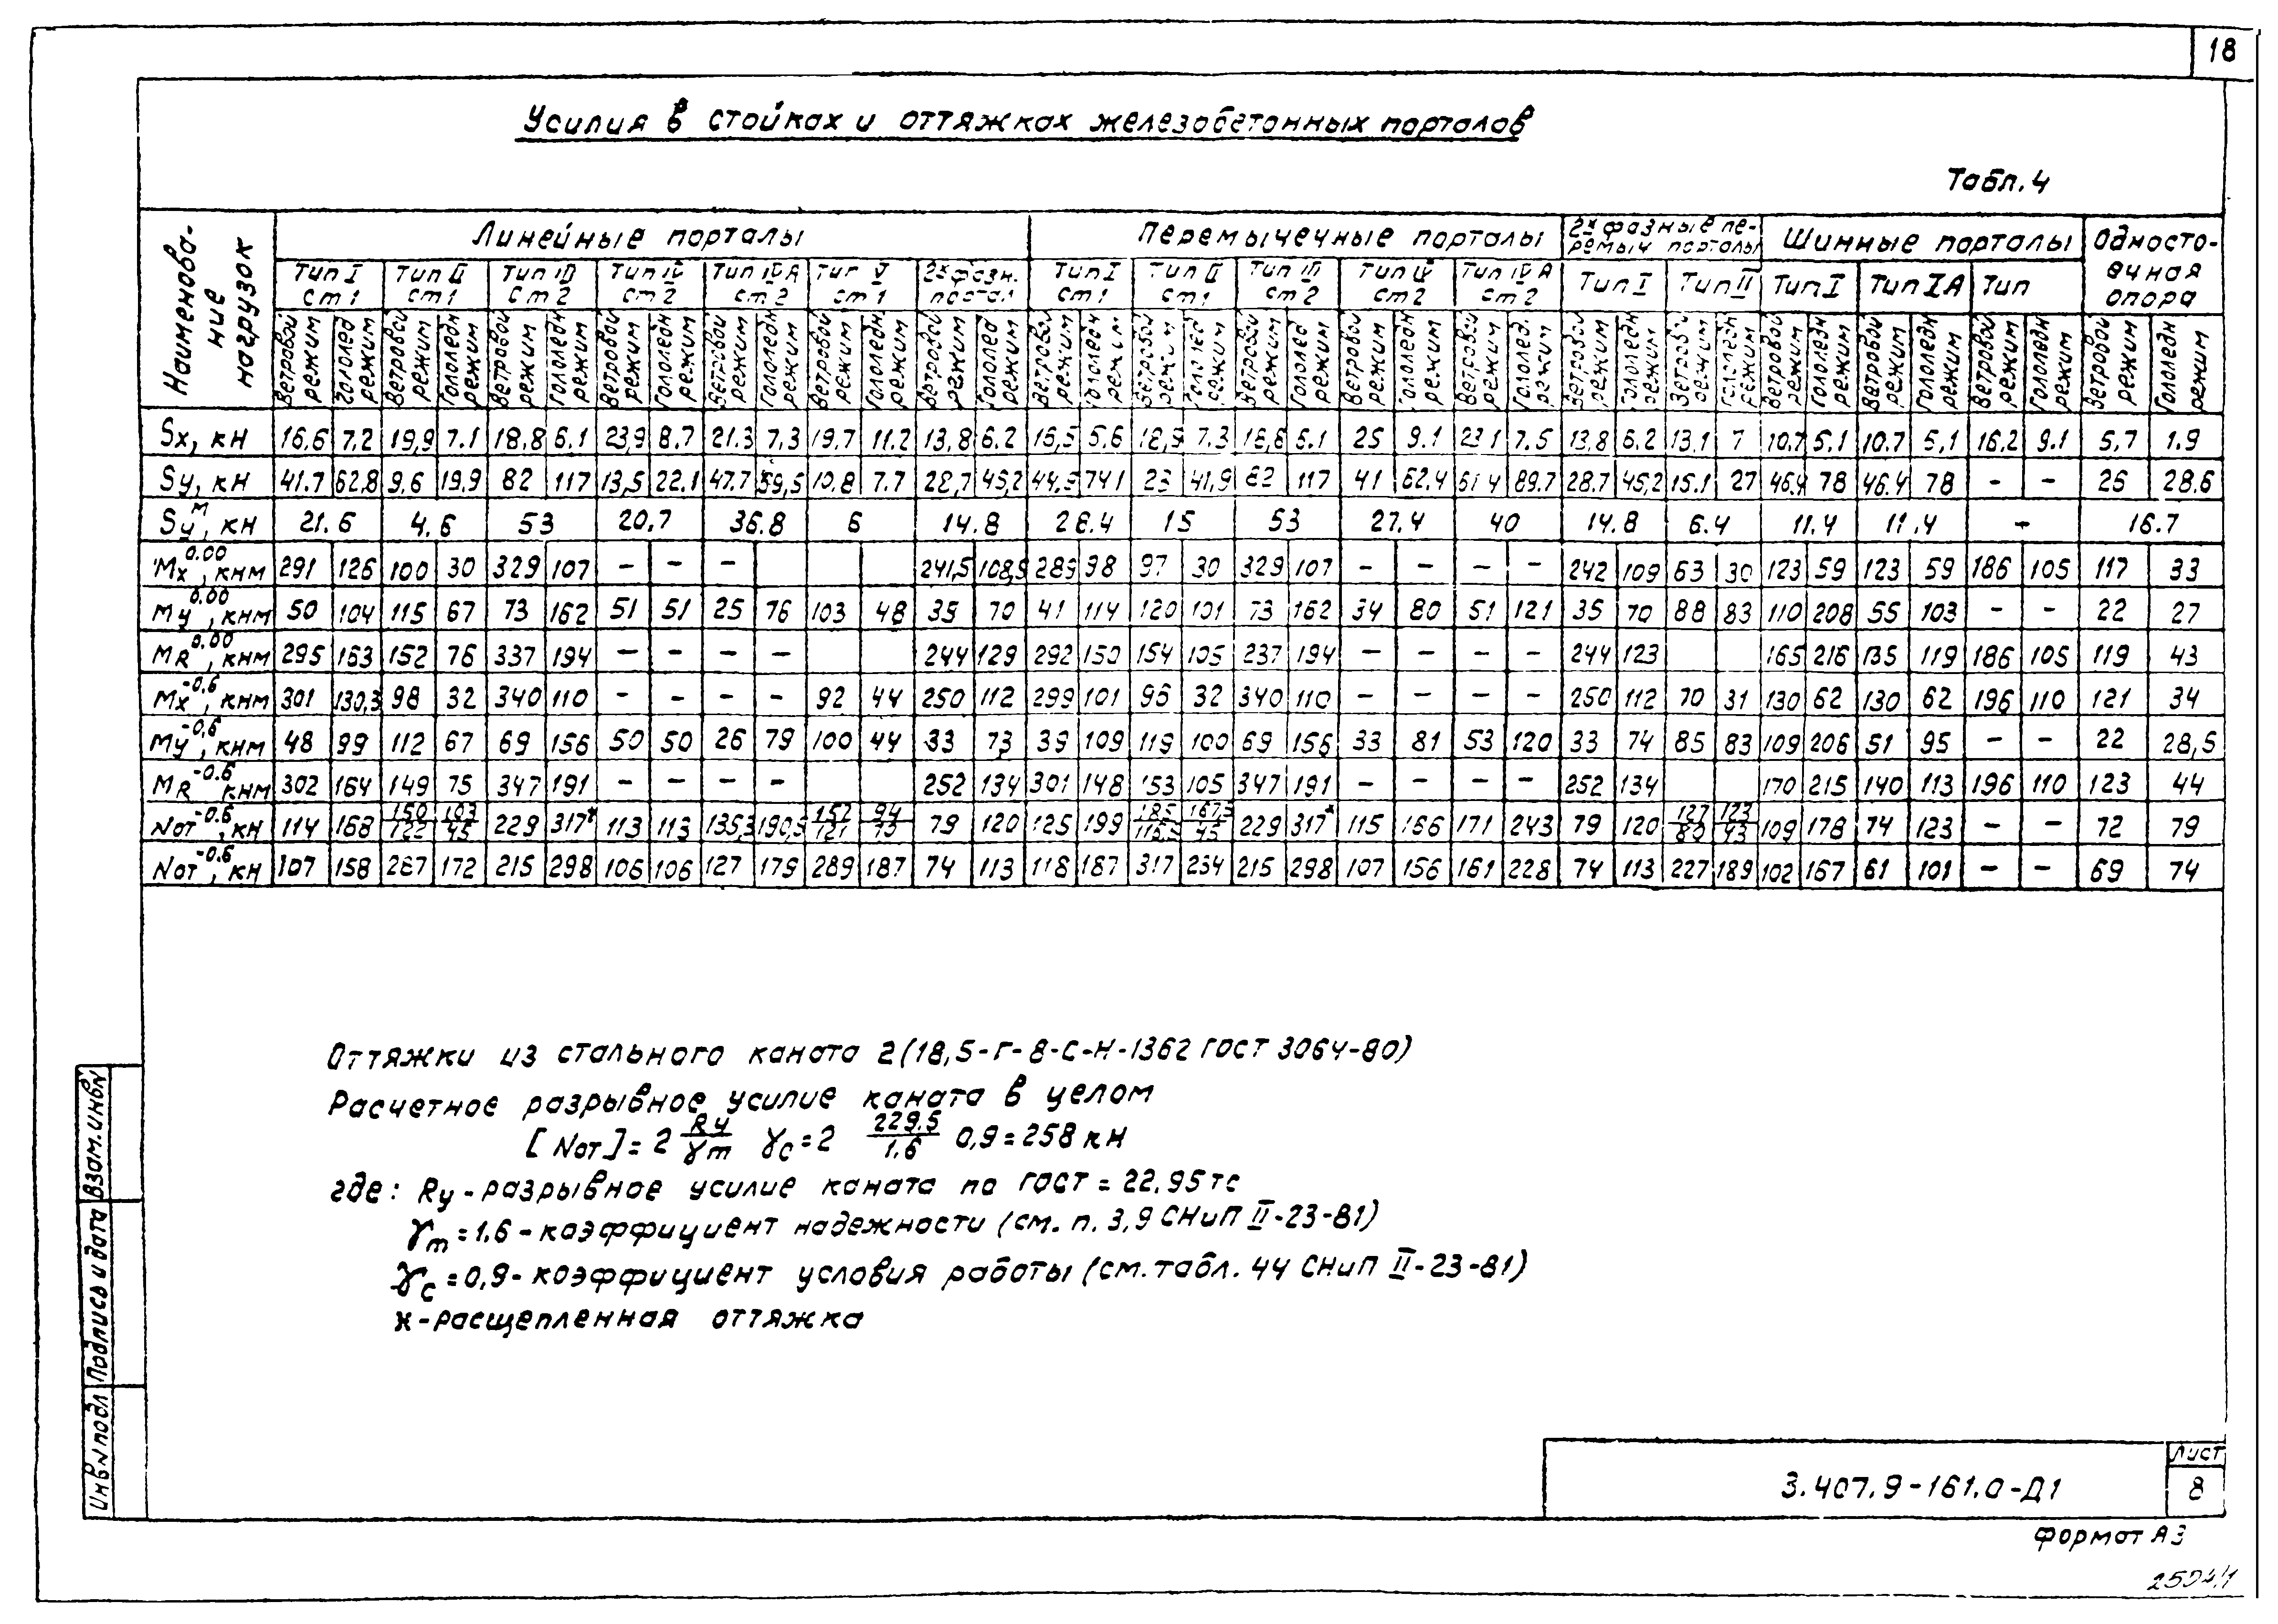 18
Усилия в стойках и оттяжках железобетонных порталов
Табл. 4
Наименова-
ние
нагрузок
Линейные порталы
Перемычечные порталы
2х фазные пе-
ремыч порталы
Шинные порталы
Односто-
ечная
опора
Тип I ст 1 Тип II ст 1 Тип III ст 2 Тип IV ст 2 Тип IV А ст 2 Тип V ст 1 2х фазн. портал Тип I ст 1 Тип II ст 1 Тип III ст 2 Тип IV ст 2 Тип IV А ст 2 Тип I Тип II Тип I Тип I А Тип
Ветровой режим Гололед режим Ветровой режим Гололедн режим Ветровой режим Гололедн режим Ветровой режим Гололедн режим Ветровой режим Гололедн режим Ветровой режим Гололедн режим Ветровой режим Гололед режим Ветровой режим Гололедн режим Ветровой режим Гололед режим Ветровой режим Гололед режим Ветровой режим Гололедн режим Ветровой режим Гололедн. режим Ветровой режим Гололедн режим Ветровой режим Гололедн режим Ветровой режим Гололедн режим Ветровой режим Гололедн режим Ветровой режим Гололедн режим Ветровой режим Гололедн режим
Sx, кН 16.6 7.2 19,9 7.1 18,8 6.1 23,9 8.7 21.3 7,3 19.7 11.2 13,8 6.2 16,5 5.6 18,9 7.3 18,8 6.1 25 9.1 23.1 7.5 13,8 6.2 13,1 7 10,7 5,1 10.7 5,1 16,2 9.1 5,7 1.9
Sy, кН 41.7 62,8 9,6 19,9 82 117 13,5 22.1 47.7 59,5 10.8 7.7 28,7 45,2 44.5 74.1 23 41,9 82 117 41 62.4 61 4 89.7 28.7 45,2 15.1 27 46,4 78 46.4 78 – – 26 28.6
Sy м, кН 21.6 4.6 53 20,7 36.8 6 14.8 26.4 15 53 27.4 40 14.8 6.4 11.4 11.4 – 16.7
Mx 0.00, кНм 291 126 100 30 329 107 – – – 241,5 108,5 289 98 97 30 329 107 – – – – 242 109 63 30 123 59 123 59 186 105 117 33
My 0.00, кНм 50 104 115 67 73 162 51 51 25 76 103 48 35 70 41 114 120 101 73 162 34 80 51 121 35 70 88 83 110 208 55 103 – – 22 27
MR 0.00, кНм 295 163 152 76 337 194 – – – – 244 129 292 150 154 105 237 194 – – – – 244 123 165 216 135 119 186 105 119 43
Mx -0,6, кНм 301 130,3 98 32 340 110 – – – – 92 44 250 112 299 101 96 32 340 110 – – – – 250 112 70 31 130 62 130 62 196 110 121 34
My -0,6, кНм 48 99 112 67 69 156 50 50 26 79 100 44 33 73 39 109 119 100 69 156 33 81 53 120 33 74 85 83 109 206 51 95 – – 22 28,5
MR -0.6 кНм 302 164 149 75 347 191 – – – – 252 134 301 148 153 105 347 191 – – – – 252 134 170 215 140 113 196 110 123 44
Nот -0.6, кН 114 168 150/122 103/45 229 317* 113 113 135,3 190,5 157/121 94/73 79 120 125 199 229 317* 115 166 171 243 79 120 127/80 123/43 109 178 74 123 – – 72 79
Nот -0.6, кН 107 158 267 172 215 298 106 106 127 179 289 187 74 113 118 187 317 234 215 298 107 156 161 228 74 113 227 189 102 167 61 101 – – 69 74
Оттяжки из стального каната 2(18,5-Г-8-С-Н-1362 ГОСТ 3064-80)
Расчетное разрывное усилие каната в целом
[Nот]= 2 Rу/γm γс=2 229.5/1.6 0,9=258 кН
где: Rу-разрывное усилие каната по ГОСТ = 22.95тс
γm=1.6-коэффициент надежности (см. п. 3,9 СНиП II-23-81)
γс=0,9-коэффициент условия работы (см. табл. 44 СНиП II-23-81)
ж-расщепленная оттяжка
Инв№подл Подпись и дата Взам.инв№
3.407.9-161.0-Д1
Лист
8
Формат А3